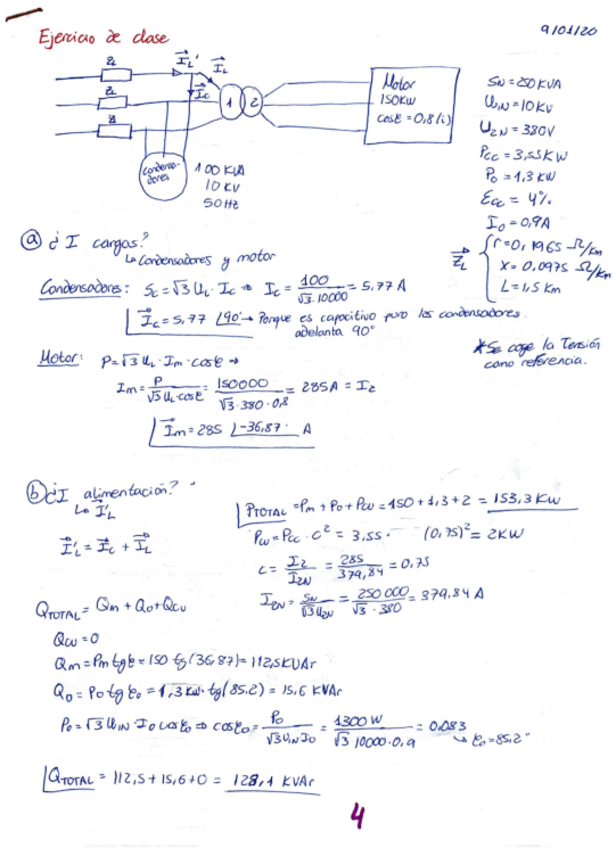 9/01/20
Ejercicio de clase
ZL
I'L
IL
ZL
IC
Z
1 2
Motor
150KW
cosφ = 0,8(i)
Condensadores
100 KVA
10 KV
50 Hz
SN = 250 KVA
U1N = 10 KV
U2N = 380V
PCC = 3,55 KW
P0 = 1,3 KW
εcc = 4%
I0 = 0,9A
ZL { r = 0,1965 Ω/Km
X = 0,0975 Ω/Km
L = 1,5 Km
a) ¿I cargas?
↳ Condensadores y motor
Condensadores: Sc = √3 UL · Ic ⇒ Ic = 100 / √3·10000 = 5,77 A
Ic = 5,77 ∟90° → Porque es capacitivo puro los condensadores.
adelanta 90°
*Se coge la Tensión
como referencia.
Motor: P = √3 UL · Im · cosφ →
Im = P / √3 UL·cosφ = 150000 / √3 · 380 · 0,8 = 285A = I2
Im = 285 ∟-36,87° A
b) ¿I alimentación?
↳ I'L
I'L = Ic + IL
PTOTAL = Pm + P0 + Pcu = 150 + 1,3 + 2 = 153,3 KW
Pcu = Pcc · C² = 3,55 · (0,75)² = 2KW
C = I2 / I2N = 285 / 379,84 = 0,75
I2N = SN / √3 U2N = 250 000 / √3 · 380 = 379,84 A
QTOTAL = Qm + Q0 + Qcu
Qcu = 0
Qm = Pm tgφ = 150 tg(36,87) = 112,5 KVAr
Q0 = P0 tgφ0 = 1,3 KW · tg(85.2) = 15,6 KVAr
P0 = √3 U1N · I0 cosφ0 ⇒ cosφ0 = P0 / √3 U1N I0 = 1300 W / √3 10000·0,9 = 0,083
↳ φ0 = 85.2°
QTOTAL = 112,5 + 15,6 + 0 = 128,1 KVAr
4